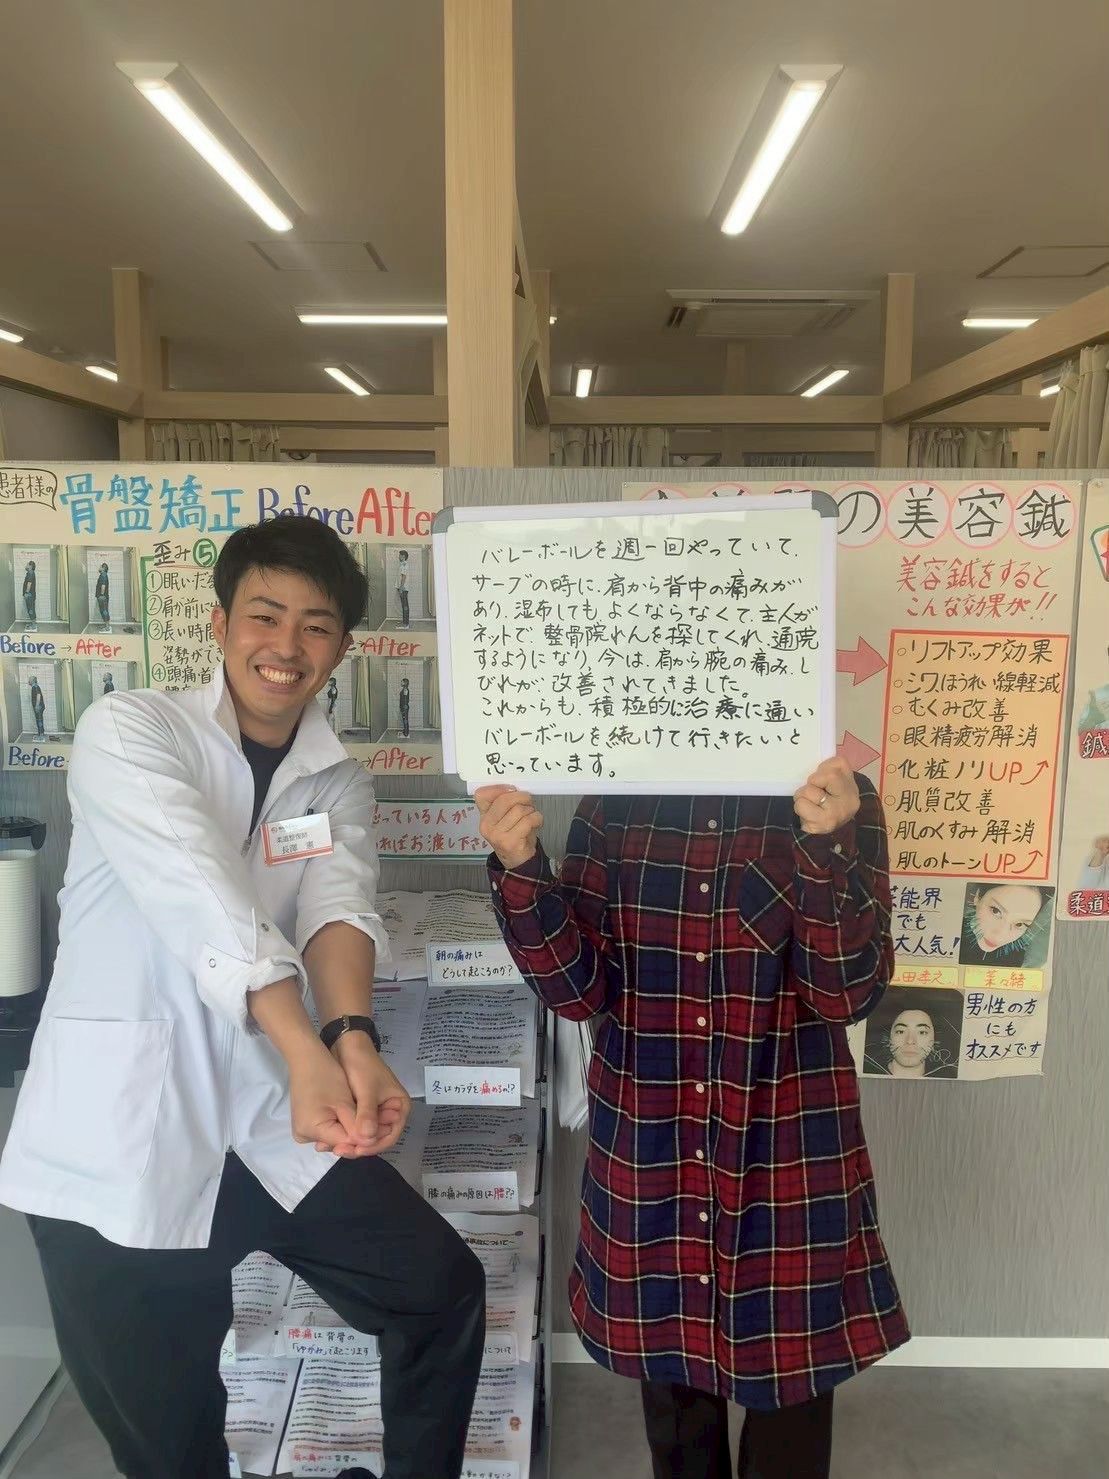 患者様の
骨盤矯正 Before After
歪み⑤
①眠いだ
②肩が前に
③長い時間
姿勢がで
④頭痛 首
Before → After
→After
Before
→After
バレーボールを週一回やっていて、
サーブの時に、肩から背中の痛みが
あり、湿布してもよくならなくて、主人が
ネットで、整骨院れんを探してくれ、通院
するようになり、今は、肩から腕の痛み、し
びれが、改善されてきました。
これからも、積極的に治療に通い
バレーボールを続けて行きたいと
思っています。
の美容鍼
美容鍼をすると
こんな効果が!!
○リフトアップ効果
○シワ、ほうれい線軽減
○むくみ改善
○眼精疲労解消
○化粧ノリUP↗
○肌質改善
○肌のくすみ解消
○肌のトーンUP↗
芸能界
でも
大人気!
山田孝之
菜々緒
男性の方
にも
オススメです
鍼
柔道
柔道整復師
長澤 憲
っている人が
ればお渡し下さい
朝の痛みは
どうして起こるのか?
冬はカラダを痛める!?
膝の痛みの原因は腰??
腰痛は背骨の
「ゆがみ」で起こります
について
肩の痛みは背骨の